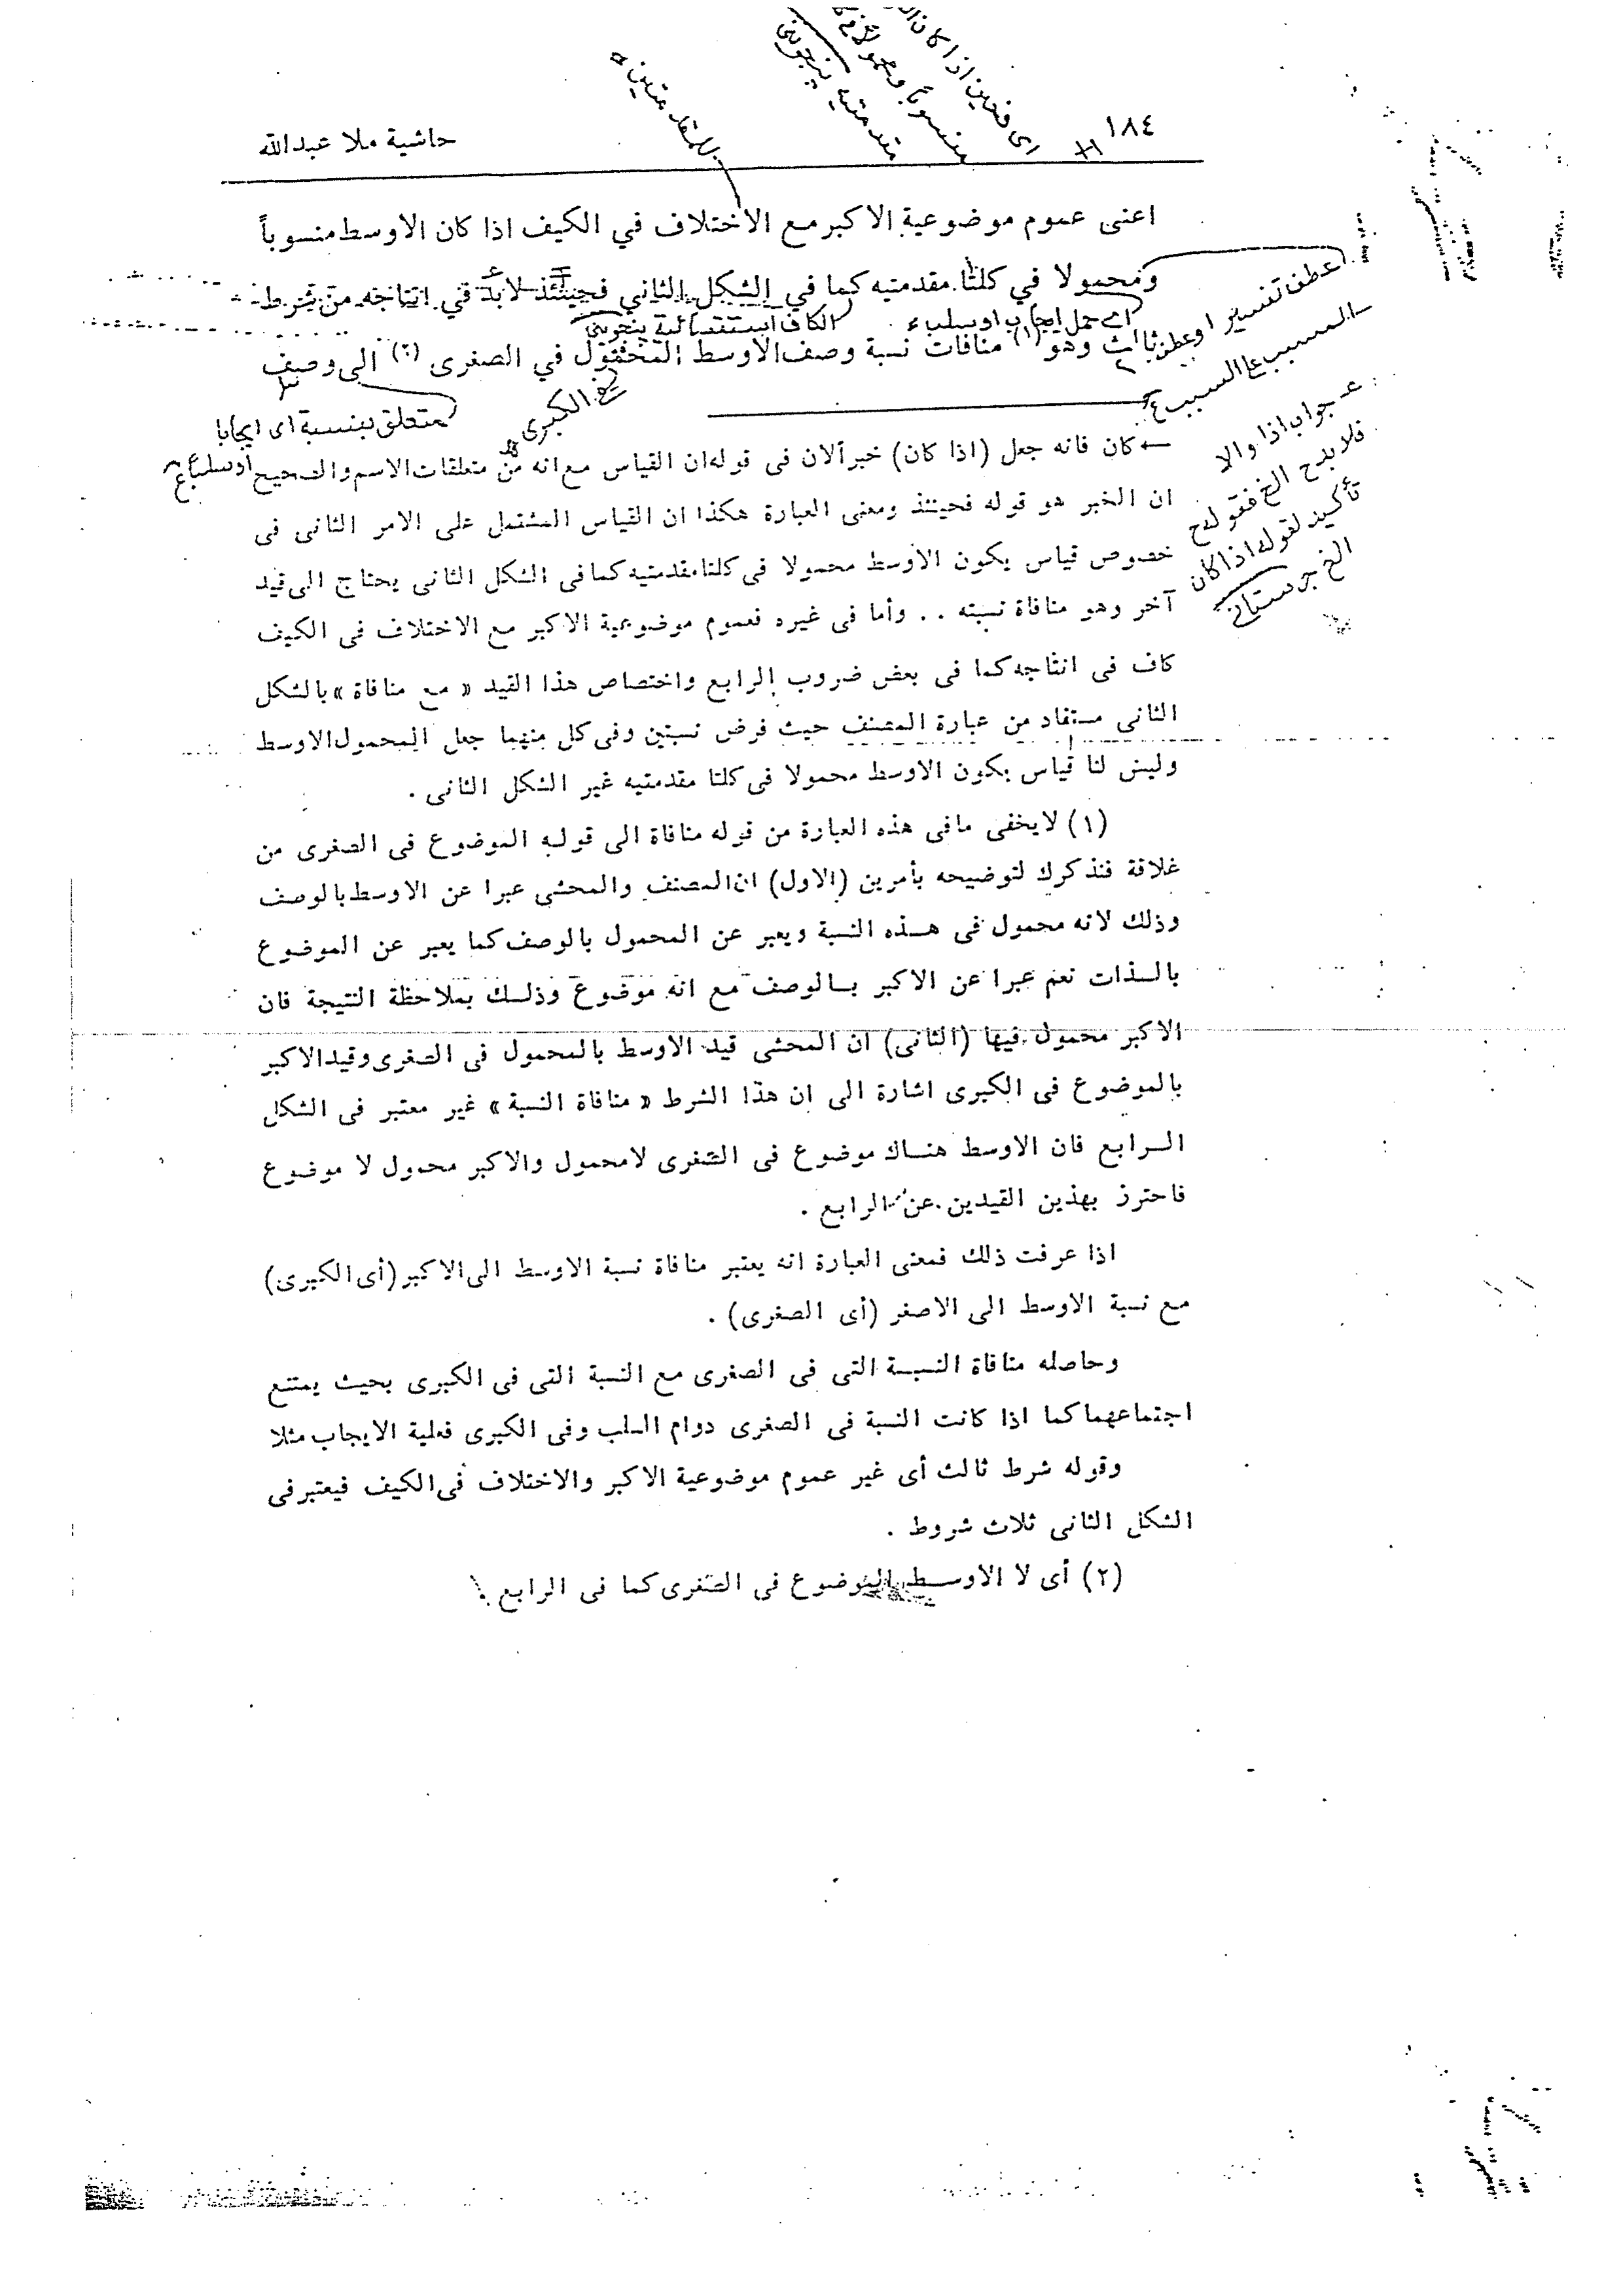 ١٨٤
حاشية ملا عبدالله
اى فحين اذا كان
منسوباً ومحمولا
مقدمتيه
للمقدمتين
اعنى عموم موضوعية الاكبر مع الاختلاف في الكيف اذا كان الاوسط منسوباً
ومحمولا في كلتا مقدمتيه كما في الشكل الثاني فحينئذ لابد في انتاجه من شرط
اى حمل ايجاب او سلب
الكاف استقصائية
ثالث وهو (١) منافات نسبة وصف الاوسط المحمول في الصغرى (٢) الى وصف
عطف تفسير او عطف
المسبب على السبب
الكبرى
متعلق بنسبة اى ايجابا
او سلبا
جواب اذا والا
فلابد ح الخ فقوله ح
تأكيد لقوله اذا كان
الخ
← كان فانه جعل (اذا كان) خبرألان فى قوله ان القياس مع انه من متعلقات الاسم والصحيح
ان الخبر هو قوله فحينئذ ومعنى العبارة هكذا ان القياس المشتمل على الامر الثانى فى
خصوص قياس يكون الاوسط محمولا فى كلتا مقدمتيه كما فى الشكل الثانى يحتاج الى قيد
آخر وهو منافاة نسبته .. وأما فى غيره فعموم موضوعية الاكبر مع الاختلاف فى الكيف
كاف فى انتاجه كما فى بعض ضروب الرابع واختصاص هذا القيد « مع منافاة » بالشكل
الثانى مستفاد من عبارة المصنف حيث فرض نسبتين وفى كل منهما جعل المحمول الاوسط
وليس لنا قياس يكون الاوسط محمولا فى كلتا مقدمتيه غير الشكل الثانى .
(١) لا يخفى ما فى هذه العبارة من قوله منافاة الى قوله الموضوع فى الصغرى من
غلاقة فنذكرك لتوضيحه بأمرين (الاول) ان المصنف والمحشى عبرا عن الاوسط بالوصف
وذلك لانه محمول فى هذه النسبة ويعبر عن المحمول بالوصف كما يعبر عن الموضوع
بالذات نعم عبرا عن الاكبر بالوصف مع انه موضوع وذلك بملاحظة النتيجة فان
الاكبر محمول فيها (الثانى) ان المحشى قيد الاوسط بالمحمول فى الصغرى وقيد الاكبر
بالموضوع فى الكبرى اشارة الى ان هذا الشرط « منافاة النسبة » غير معتبر فى الشكل
الرابع فان الاوسط هناك موضوع فى الصغرى لا محمول والاكبر محمول لا موضوع
فاحترز بهذين القيدين عن الرابع .
اذا عرفت ذلك فمعنى العبارة انه يعتبر منافاة نسبة الاوسط الى الاكبر (أى الكبرى)
مع نسبة الاوسط الى الاصغر (أى الصغرى) .
وحاصله منافاة النسبة التى فى الصغرى مع النسبة التى فى الكبرى بحيث يمتنع
اجتماعهما كما اذا كانت النسبة فى الصغرى دوام السلب وفى الكبرى فعلية الايجاب مثلا
وقوله شرط ثالث أى غير عموم موضوعية الاكبر والاختلاف فى الكيف فيعتبر فى
الشكل الثانى ثلاث شروط .
(٢) أى لا الاوسط الموضوع فى الصغرى كما فى الرابع .